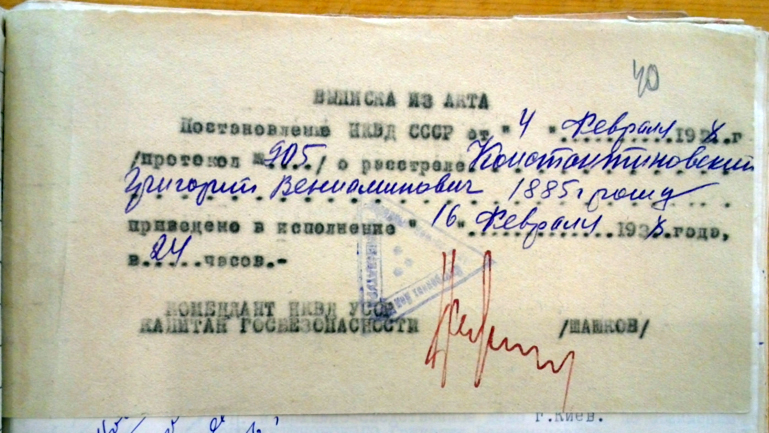 40
ВЫПИСКА ИЗ АКТА
Постановление НКВД СССР от "4" февраля 1938 г
/протокол №905/ о расстреле Константиновский
Григорий Вениаминович 1885 г рожд
приведено в исполнение "16" февраля 1938 года,
в 24 часов.-
КОМЕНДАНТ НКВД УССР
КАПИТАН ГОСБЕЗОПАСНОСТИ /ШАШКОВ/
г.Киев.